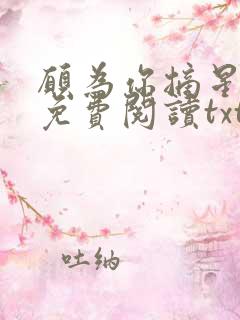 願為你摘星
免費閱讀txt
吐納